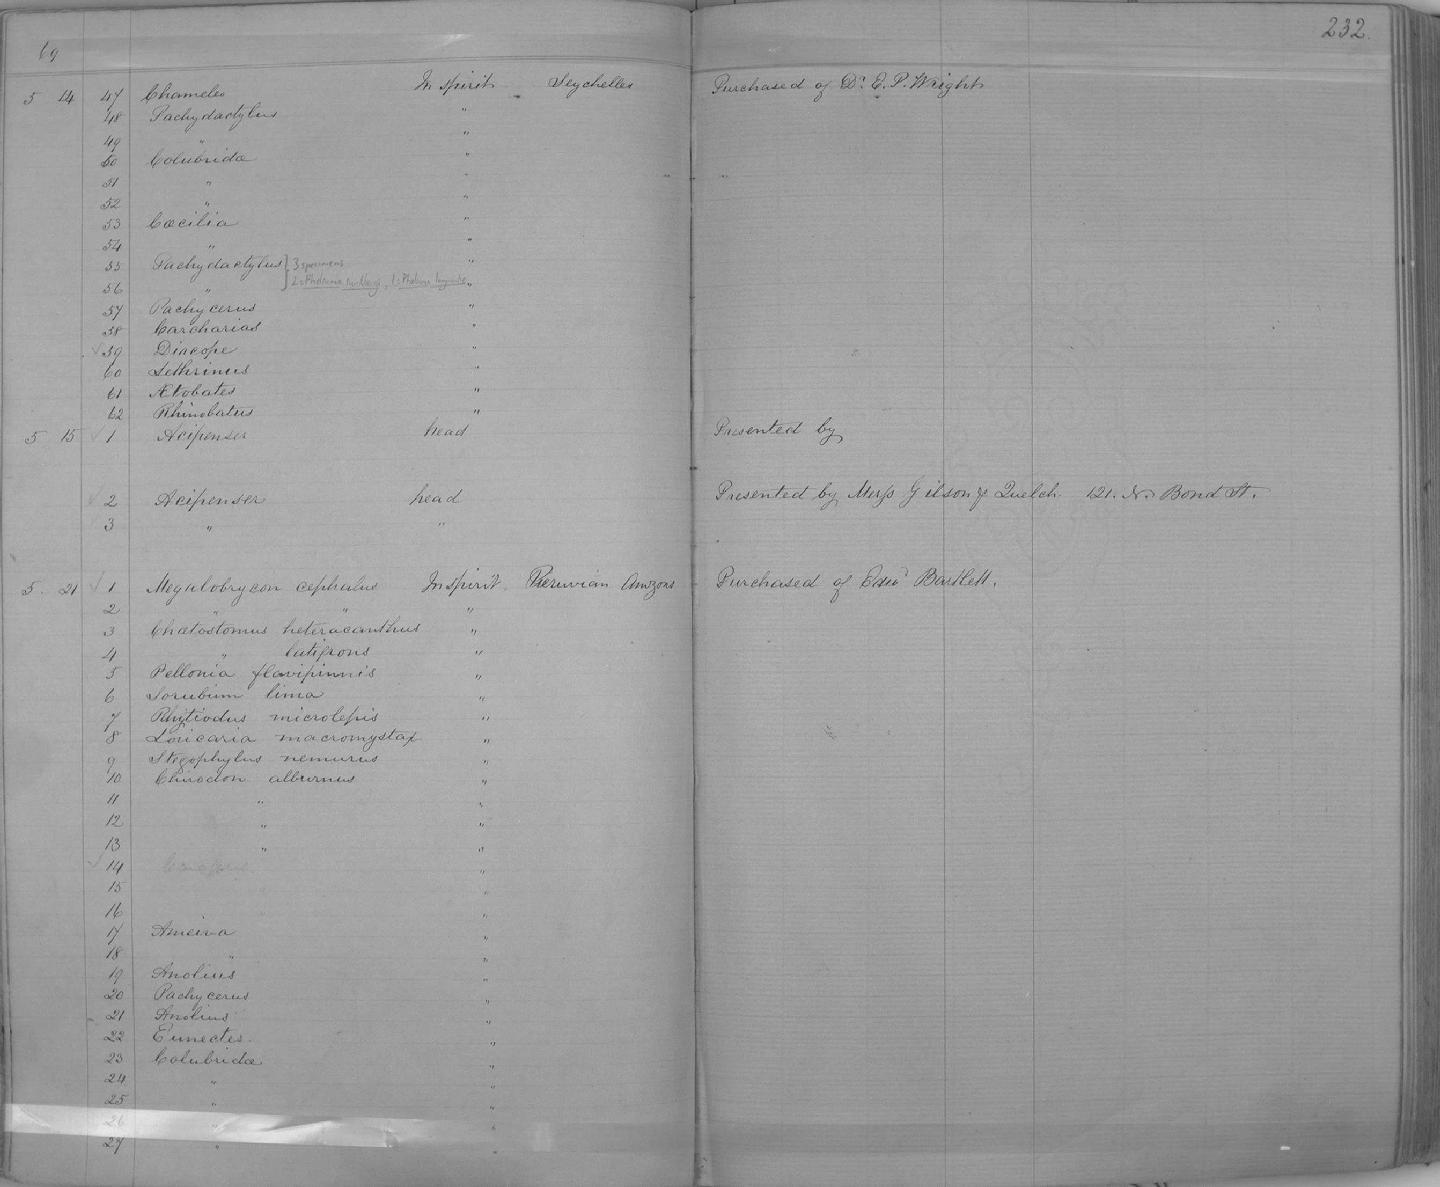 69 232.
5 14 47 Chameleo In spirit Seychelles Purchased of Dr. E. P. Wright
48 Pachydactylus "
49 " "
50 Colubridæ "
51 " "
52 " "
53 Cœcilia "
54 " "
55 Pachydactylus } 3 specimens "
56 " "
57 Pachycerus "
58 Carcharias "
59 Diacope "
60 Lethrinus "
61 Ætobates "
62 Rhinobatus "
5 15 1 Acipenser head Presented by
2 Acipenser head Presented by Messrs Gilson & Quelch 121. N. Bond St.
3 " "
5. 21 1 Megalobrycon cephalus In spirit. Peruvian Amzons Purchased of Edwd Bartlett.
2 " " "
3 Chætostomus heteracanthus "
4 " "
5 Pellonia flavipinnis "
6 Sorubium lima "
7 Rhytiodus microlepis "
8 Loricaria macromystax "
9 Stegophylus nemurus "
10 Chirodon alburnus "
11 " "
12 " "
13 " "
14 "
15 "
16 "
17 Ameiva "
18 " "
19 Anolius "
20 Pachycerus "
21 Anolius "
22 Eunectes. "
23 Colubridæ "
24 " "
25 " "
26 " "
27 "